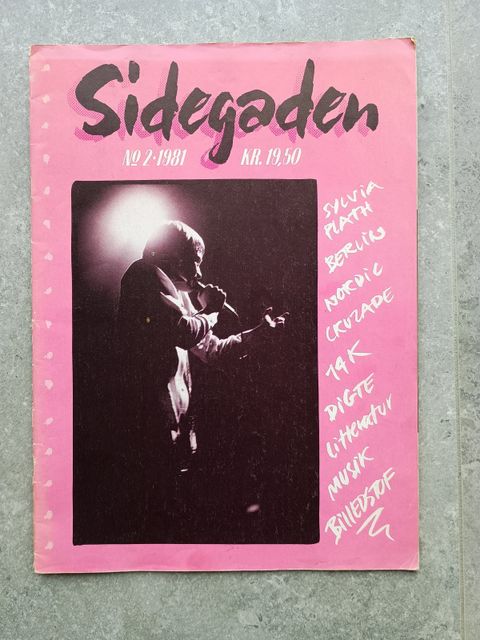 Sidegaden
No 2·1981 KR. 19,50
SYLVIA
PLATH
BERLIN
NORDIC
CRUZADE
14K
DIGTE
LITTERATUR
MUSIK
BILLEDSTOF